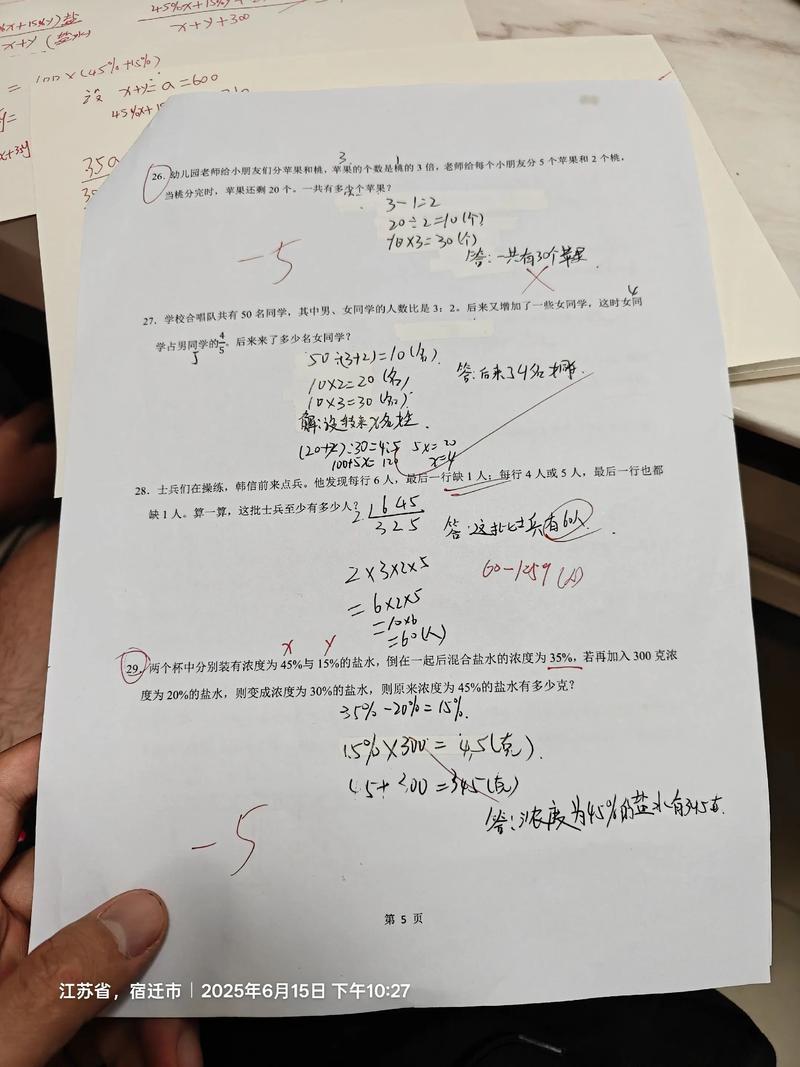 x+y (盐水)
x+y+300
= 100×(45%+15%)
设 x+y=a=600
26. 幼儿园老师给小朋友们分苹果和桃,苹果的个数是桃的 3 倍,老师给每个小朋友分 5 个苹果和 2 个桃,
当桃分完时,苹果还剩 20 个。一共有多少个苹果?
3-1=2
20÷2=10(个)
10×3=30(个)
答:一共有30个苹果.
-5
27. 学校合唱队共有 50 名同学,其中男、女同学的人数比是 3:2。后来又增加了一些女同学,这时女同
学占男同学的4/5。后来来了多少名女同学?
50÷(3+2)=10(名)
10×2=20(名)
10×3=30(名)
答:后来了4名
(20+x):30=4:5 5x=20
100+5x=120 x=4
28. 士兵们在操练,韩信前来点兵。他发现每行 6 人,最后一行缺 1 人;每行 4 人或 5 人,最后一行也都
缺 1 人。算一算,这批士兵至少有多少人?
2 6 4 5
3 2 5
答:这批士兵有60人.
2×3×2×5
=6×2×5
=10×6
=60(人)
60-1=59(人)
x y
29. 两个杯中分别装有浓度为 45%与 15%的盐水,倒在一起后混合盐水的浓度为 35%,若再加入 300 克浓
度为 20%的盐水,则变成浓度为 30%的盐水,则原来浓度为 45%的盐水有多少克?
35%-20%=15%.
15%×300=45(克).
45+300=345(克)
答:浓度为45%的盐水有345克.
-5
第 5 页
江苏省,宿迁市 | 2025年6月15日 下午10:27